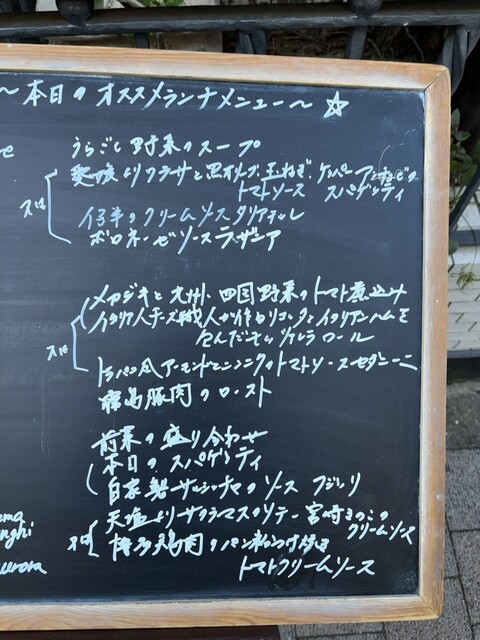 ～本日のオススメランチメニュー～☆
うらごし野菜のスープ
黒オリーブ、玉ねぎ、ケッパー、アンチョビの
トマトソース スパゲッティ
又は
仔羊のクリームソース タリアテレ
ボロネーゼソースラザニア
メカジキと九州、四国野菜のトマト煮込み
イタリア人チーズ職人が作るリコッタとイタリアンハムを
ロール
又は
トラパニ風アーモンドとニンニクのトマトソースセダニーニ
豚肉のロースト
前菜の盛り合わせ
本日のスパゲッティ
自家製サルシッチャのソース フジッリ
サクラマスのソテー 宮崎きのこの
クリームソース
又は
博多鶏肉のパン粉つけ焼き
トマトクリームソース
nghi
urora